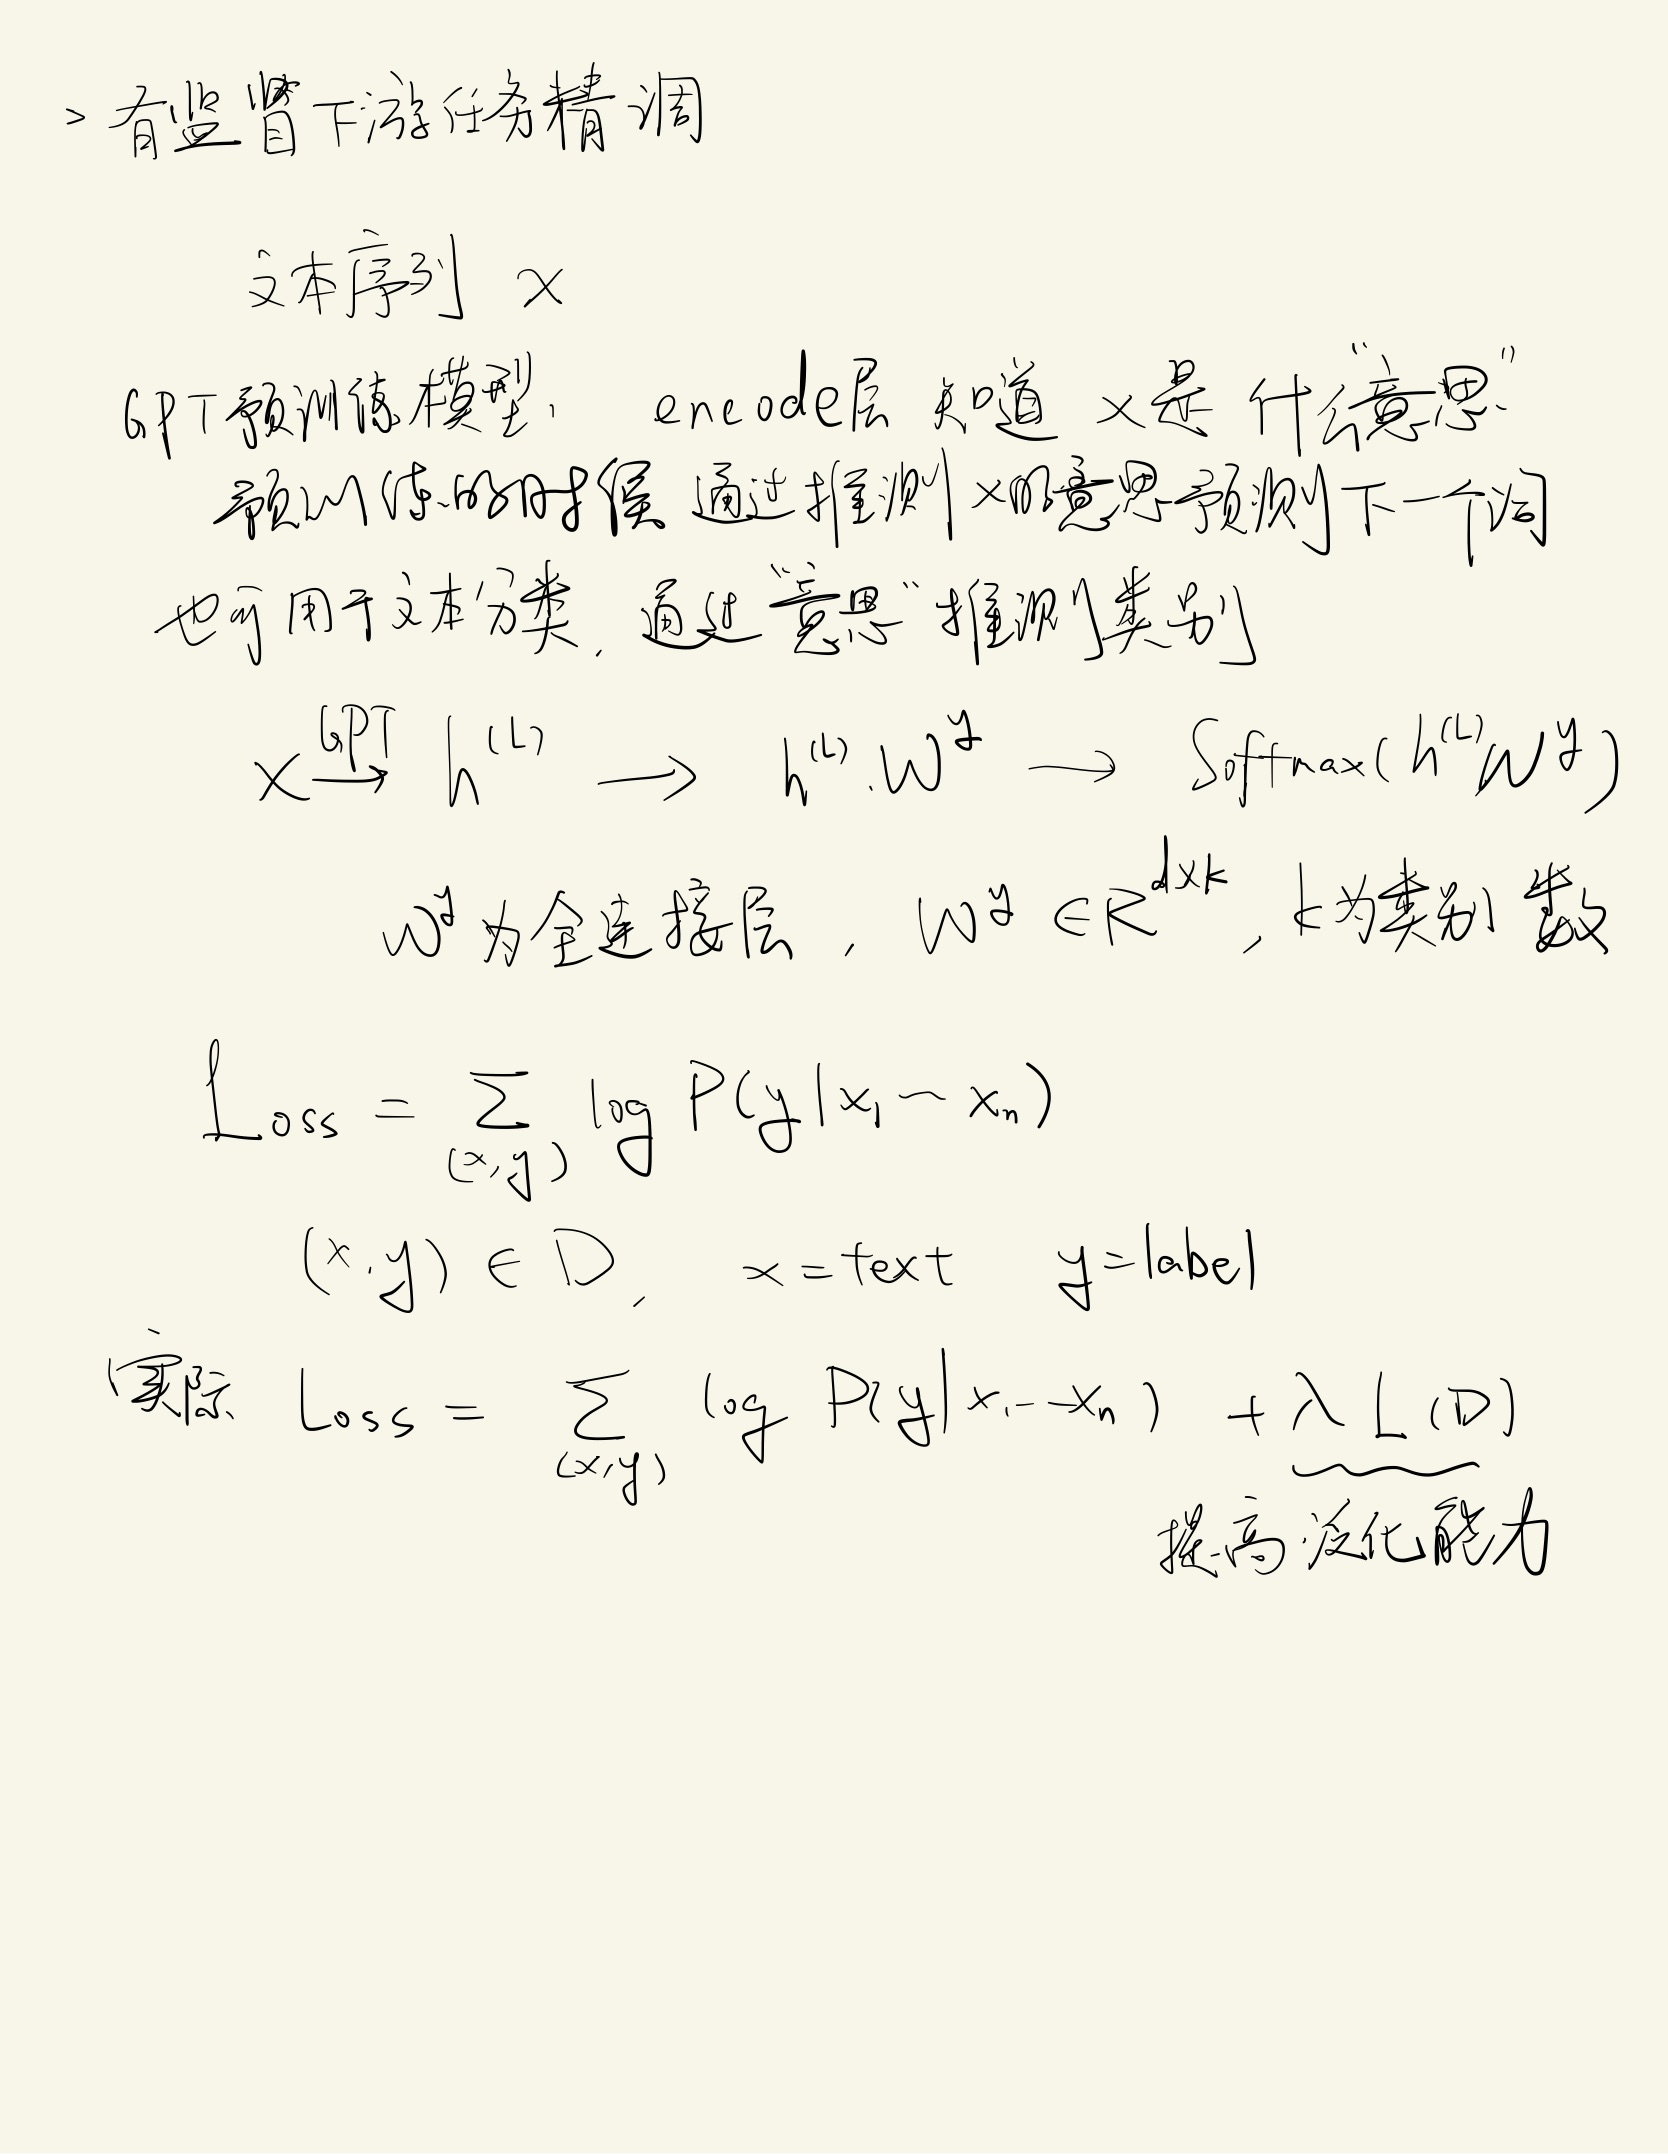 > 有监督下游任务精调
文本序列 x
GPT预训练模型, encode层 知道 x是 什么“意思”
预训练的时候 通过推测x的意思预测下一个词
也可用于文本分类, 通过“意思”推测类别
x \xrightarrow{GPT} h^{(L)} → h^{(L)}·W^y → Softmax(h^{(L)}W^y)
W^y为全连接层, W^y ∈R^{d×k}, k为类别数
Loss = \sum_{(x,y)} log P(y|x_1 ~ x_n)
(x,y) ∈ D, x=text y=label
实际 Loss = \sum_{(x,y)} log P(y|x_1--x_n) + λL(D)
提高泛化能力